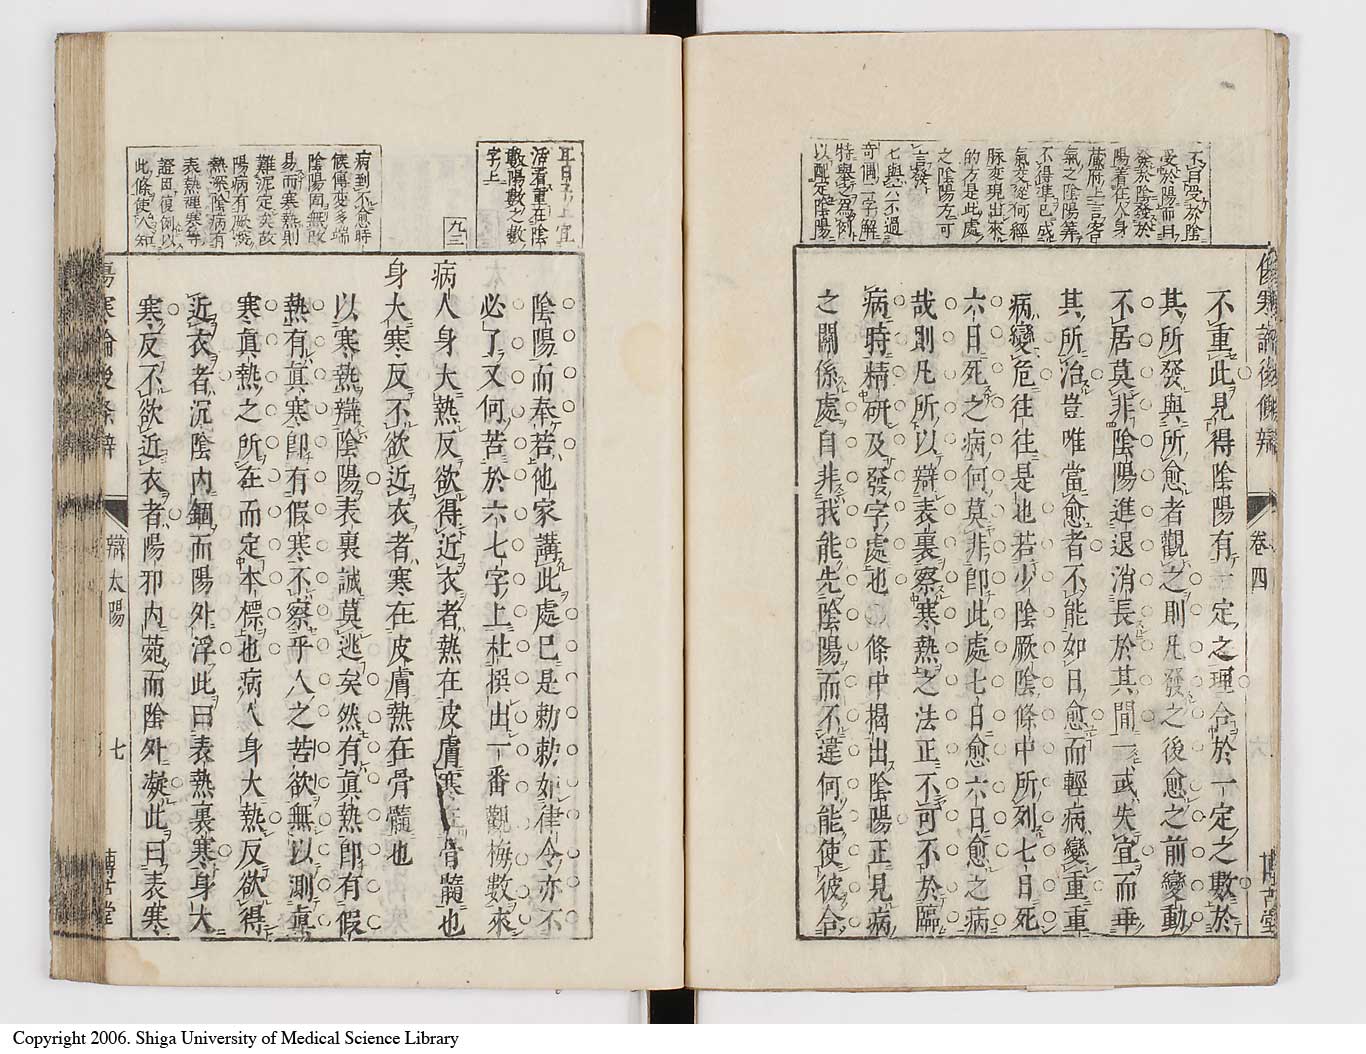 不重此見得陰陽有一定之理合於一定之數於
其所發與所愈者觀之則凡發之後愈之前變動
不居莫非陰陽進退消長於其間一或失宜而乖
其所治豈唯當愈者不能如日愈而輕病變重重
病變危往往是也若少陰厥陰條中所列七日死
六日死之病何莫非卽此處七日愈六日愈之病
哉則凡所以辯表裏察寒熱之法正不可不於臨
病時精研及發字處也條中揭出陰陽正見病
之關係處自非我能先陰陽而不違何能使彼合
陰陽而奉若他家講此處已是勅勅如律令亦不
必了又何苦於六七字上杜撰出一番觀梅數來
病人身大熱反欲得近衣者熱在皮膚寒在骨髓也
身大寒反不欲近衣者寒在皮膚熱在骨髓也
以寒熱辯陰陽表裏誠莫逃矣然有眞熱卽有假
熱有眞寒卽有假寒不察乎人之苦欲無以測眞
寒眞熱之所在而定本標也病人身大熱反欲得
近衣者沉陰內錮而陽外浮此曰表熱裏寒身大
寒反不欲近衣者陽邪內菀而陰外凝此曰表寒
不曰受於陰
受於陽而曰
發於陰發於
陽着在人身
臟府上言客
氣之陰陽業
不得準已成
氣交從何經
脉變現出來
的方是此處
之陰陽左可
言發
七與六不過
奇偶二字解
特舉之爲例
以配定陰陽
耳日子上宜
活看重在陰
數陽數之數
字上
九三
病到不愈時
候傳變多端
陰陽固無改
易而寒熱則
難泥定矣故
陽病有厥深
熱深陰病有
表熱裡寒等
證因復例以
此條使人知
傷寒論後條辯
卷四
博古堂
傷寒論後條辯
辯太陽
七
博古堂
Copyright 2006. Shiga University of Medical Science Library